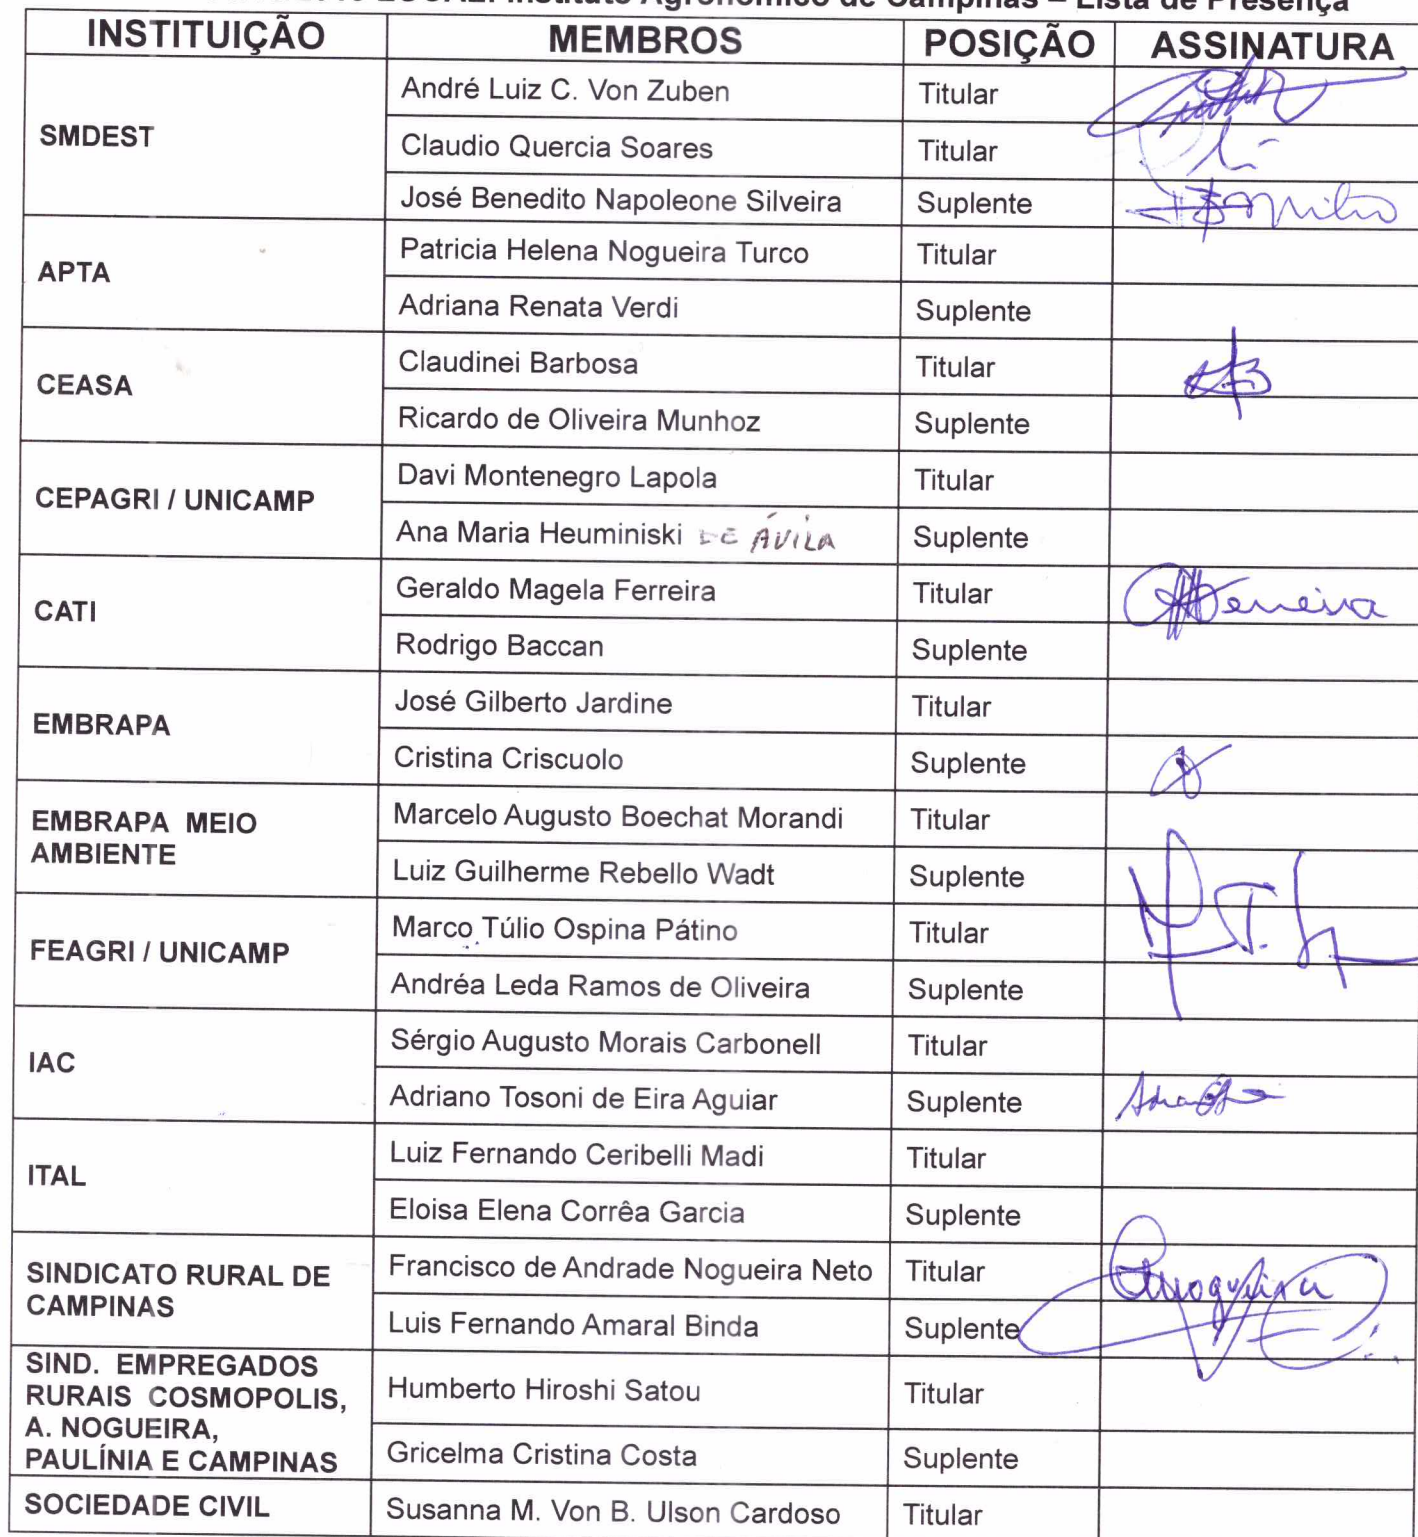 LOCAL: Instituto Agronômico de Campinas – Lista de Presença
INSTITUIÇÃO MEMBROS POSIÇÃO ASSINATURA
SMDEST
André Luiz C. Von Zuben Titular
Claudio Quercia Soares Titular
José Benedito Napoleone Silveira Suplente
APTA
Patricia Helena Nogueira Turco Titular
Adriana Renata Verdi Suplente
CEASA
Claudinei Barbosa Titular
Ricardo de Oliveira Munhoz Suplente
CEPAGRI / UNICAMP
Davi Montenegro Lapola Titular
Ana Maria Heuminiski DE ÁVILA Suplente
CATI
Geraldo Magela Ferreira Titular Ferreira
Rodrigo Baccan Suplente
EMBRAPA
José Gilberto Jardine Titular
Cristina Criscuolo Suplente
EMBRAPA MEIO
AMBIENTE
Marcelo Augusto Boechat Morandi Titular
Luiz Guilherme Rebello Wadt Suplente
FEAGRI / UNICAMP
Marco Túlio Ospina Pátino Titular
Andréa Leda Ramos de Oliveira Suplente
IAC
Sérgio Augusto Morais Carbonell Titular
Adriano Tosoni de Eira Aguiar Suplente
ITAL
Luiz Fernando Ceribelli Madi Titular
Eloisa Elena Corrêa Garcia Suplente
SINDICATO RURAL DE
CAMPINAS
Francisco de Andrade Nogueira Neto Titular
Luis Fernando Amaral Binda Suplente
SIND. EMPREGADOS
RURAIS COSMOPOLIS,
A. NOGUEIRA,
PAULÍNIA E CAMPINAS
Humberto Hiroshi Satou Titular
Gricelma Cristina Costa Suplente
SOCIEDADE CIVIL Susanna M. Von B. Ulson Cardoso Titular